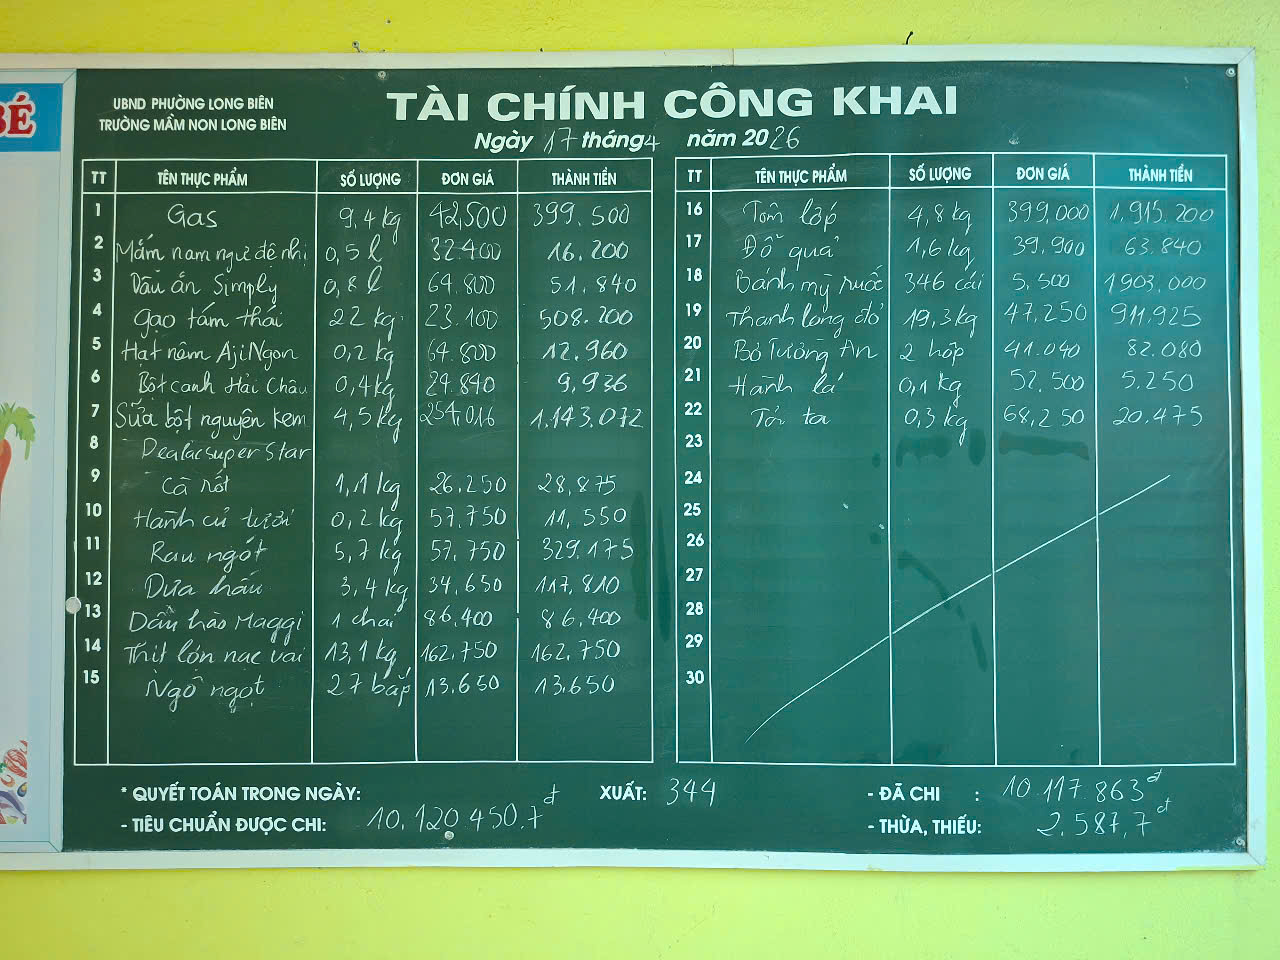 BÉ
UBND PHƯỜNG LONG BIÊN
TRƯỜNG MẦM NON LONG BIÊN
TÀI CHÍNH CÔNG KHAI
Ngày 17 tháng 4 năm 2026
TT TÊN THỰC PHẨM SỐ LƯỢNG ĐƠN GIÁ THÀNH TIỀN
1 Gas 9,4 kg 42,500 399.500
2 Mắm nam ngư đệ nhị 0,5 l 32.400 16.200
3 Dầu ăn Simply 0,8 l 64.800 51.840
4 Gạo tám thái 22 kg 23.100 508.200
5 Hạt nêm AjiNgon 0,2 kg 64.800 12.960
6 Bột canh Hải Châu 0,4 kg 24.840 9.936
7 Sữa bột nguyên kem 4,5 kg 254.016 1.143.072
8 Dealac super Star
9 Cà rốt 1,1 kg 26.250 28.875
10 Hành củ tươi 0,2 kg 57.750 11,550
11 Rau ngót 5,7 kg 57.750 329.175
12 Dưa hấu 3,4 kg 34.650 117.810
13 Dầu hào Maggi 1 chai 86.400 86.400
14 Thịt lợn nạc vai 13,1 kg 162.750 162.750
15 Ngô ngọt 27 bắp 13.650 13.650
TT TÊN THỰC PHẨM SỐ LƯỢNG ĐƠN GIÁ THÀNH TIỀN
16 Tôm lớp 4,8 kg 399.000 1.915.200
17 Đỗ quả 1,6 kg 39.900 63.840
18 Bánh mỳ ruốc 346 cái 5.500 1903.000
19 Thanh long đỏ 19,3 kg 47,250 911.925
20 Bơ Tường An 2 hộp 41.040 82.080
21 Hành lá 0,1 kg 52.500 5.250
22 Tỏi ta 0,3 kg 68,250 20.475
23
24
25
26
27
28
29
30
* QUYẾT TOÁN TRONG NGÀY: XUẤT: 344 - ĐÃ CHI : 10.117.863đ
- TIÊU CHUẨN ĐƯỢC CHI: 10.120.450,7đ - THỪA, THIẾU: 2.587,7đ